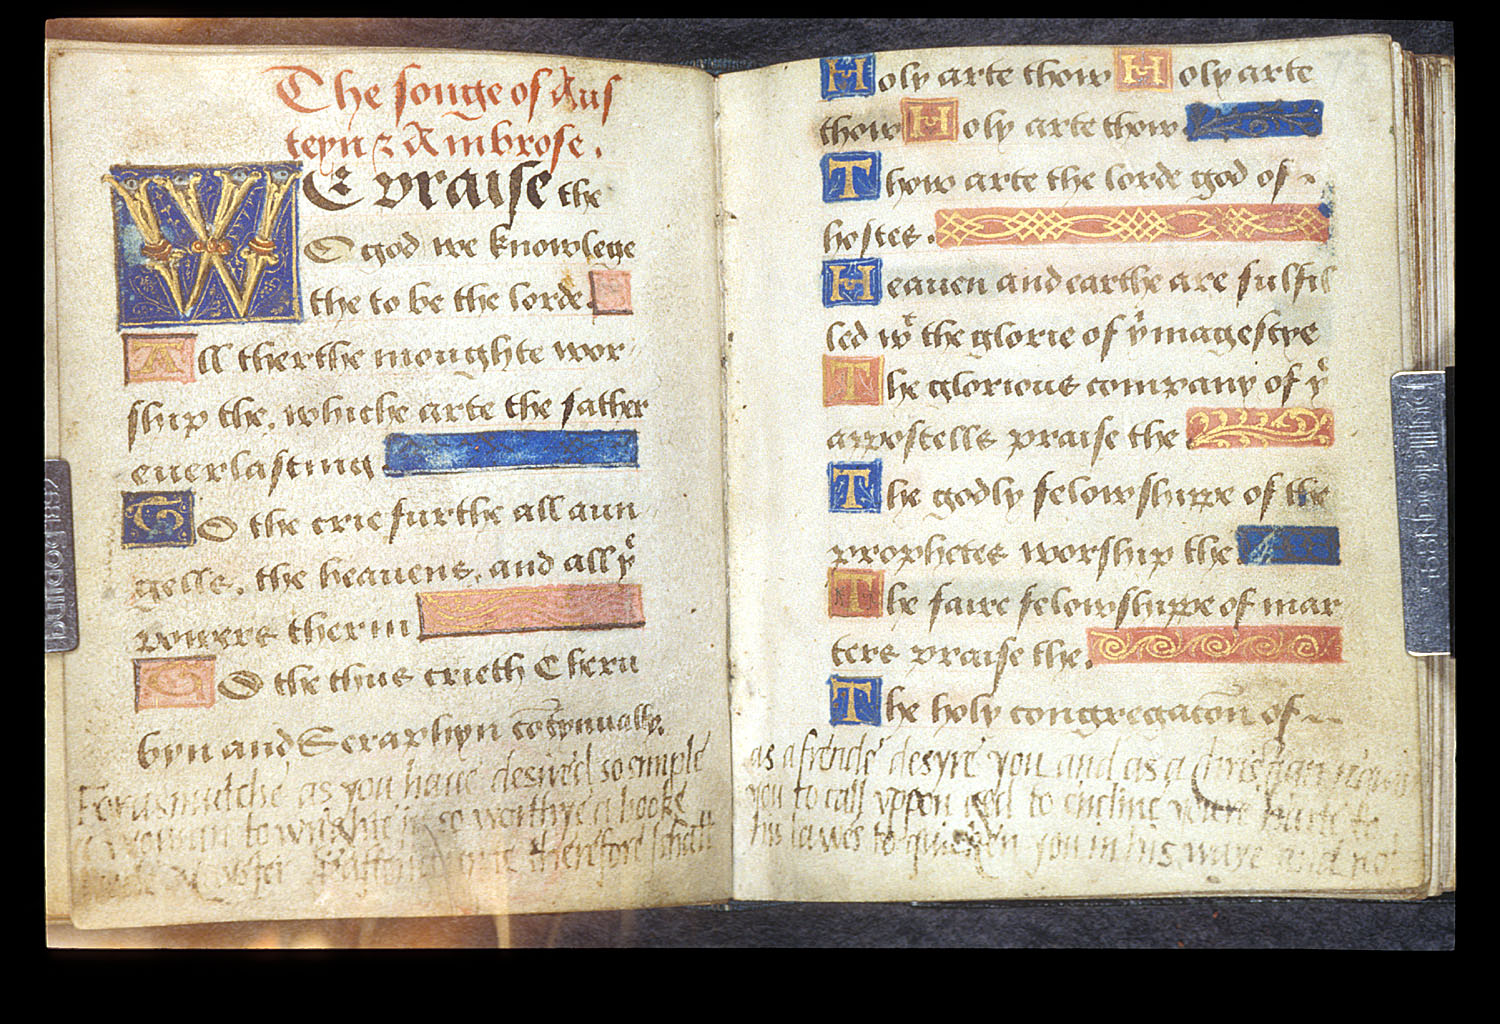 The songe of Aus
teyn & Ambrose.
WE praise the
O god we knowlege
the to be the lorde.
All therthe moughte wor
ship the. whiche arte the father
euerlasting.
TO the crie furthe all aun
gells. the heauens. and all yͤ
powers therin
TO the thus crieth Cheru
byn and Seraphyn cōtynually.
Forasmutche as you haue desired so simple
a woman to wrighte in so worthye a booke
mayster therefore I shall
Holy arte thow Holy arte
thow Holy arte thow
Thow arte the lorde god of
hostes.
Heauen and earthe are fulfil
led wͭ the glorie of yͬ magestye
The glorious company of yͤ
apostells praise the
The godly felowshippe of the
prophetes worship the
The faire felowshippe of mar
ters praise the.
The holy congregacōn of
as a frende desyre you and as a christian
you to call uppon god to encline youre harte to
his lawes to quicken you in his waye and not